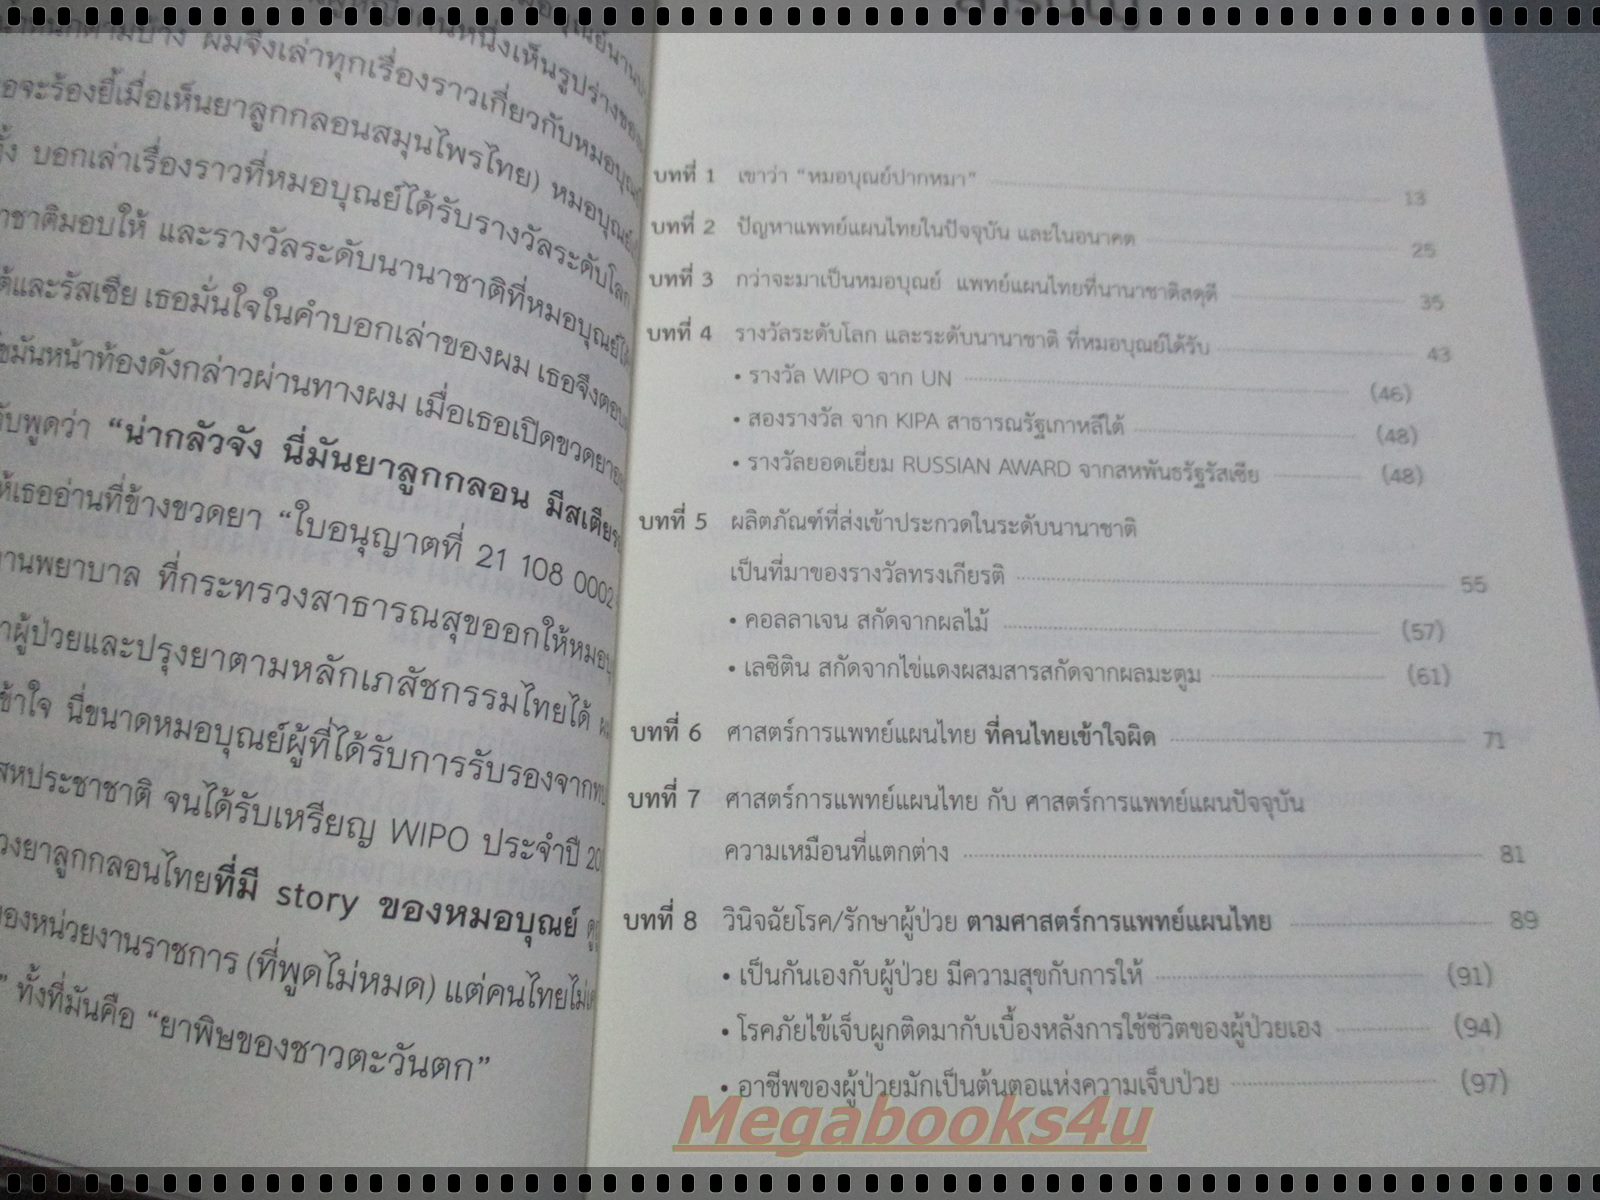 ผมจึงเล่าทุกเรื่องราวเกี่ยวกับหมอบุณย์
จะร้องยี้เมื่อเห็นยาลูกกลอนสมุนไพรไทย) หมอบุณย์
บอกเล่าเรื่องราวที่หมอบุณย์ได้รับรางวัลระดับโลก
ชาติมอบให้ และรางวัลระดับนานาชาติที่หมอบุณย์ได้
และรัสเซีย เธอมั่นใจในคำบอกเล่าของผม เธอจึงตอบ
มันหน้าท้องดังกล่าวผ่านทางผม เมื่อเธอเปิดขวดยา
พูดว่า “น่ากลัวจัง นี่มันยาลูกกลอน มีสเตียร
ให้เธออ่านที่ข้างขวดยา “ใบอนุญาตที่ 21 108 0002
านพยาบาล ที่กระทรวงสาธารณสุขออกให้หมอบุ
าผู้ป่วยและปรุงยาตามหลักเภสัชกรรมไทยได้
ข้าใจ นี่ขนาดหมอบุณย์ผู้ที่ได้รับการรับรองจาก
สหประชาชาติ จนได้รับเหรียญ WIPO ประจำปี 20
วงยาลูกกลอนไทยที่มี story ของหมอบุณย์
ของหน่วยงานราชการ (ที่พูดไม่หมด) แต่คนไทยไม่
” ทั้งที่มันคือ “ยาพิษของชาวตะวันตก”
สารบัญ
บทที่ 1 เขาว่า “หมอบุณย์ปากหมา” 13
บทที่ 2 ปัญหาแพทย์แผนไทยในปัจจุบัน และในอนาคต 25
บทที่ 3 กว่าจะมาเป็นหมอบุณย์ แพทย์แผนไทยที่นานาชาติสดุดี 35
บทที่ 4 รางวัลระดับโลก และระดับนานาชาติ ที่หมอบุณย์ได้รับ 43
• รางวัล WIPO จาก UN (46)
• สองรางวัล จาก KIPA สาธารณรัฐเกาหลีใต้ (48)
• รางวัลยอดเยี่ยม RUSSIAN AWARD จากสหพันธรัฐรัสเซีย (48)
บทที่ 5 ผลิตภัณฑ์ที่ส่งเข้าประกวดในระดับนานาชาติ
เป็นที่มาของรางวัลทรงเกียรติ 55
• คอลลาเจน สกัดจากผลไม้ (57)
• เลซิติน สกัดจากไข่แดงผสมสารสกัดจากผลมะตูม (61)
บทที่ 6 ศาสตร์การแพทย์แผนไทย ที่คนไทยเข้าใจผิด 71
บทที่ 7 ศาสตร์การแพทย์แผนไทย กับ ศาสตร์การแพทย์แผนปัจจุบัน
ความเหมือนที่แตกต่าง 81
บทที่ 8 วินิจฉัยโรค/รักษาผู้ป่วย ตามศาสตร์การแพทย์แผนไทย 89
• เป็นกันเองกับผู้ป่วย มีความสุขกับการให้ (91)
• โรคภัยไข้เจ็บผูกติดมากับเบื้องหลังการใช้ชีวิตของผู้ป่วยเอง (94)
• อาชีพของผู้ป่วยมักเป็นต้นตอแห่งความเจ็บป่วย (97)
Megabooks4u